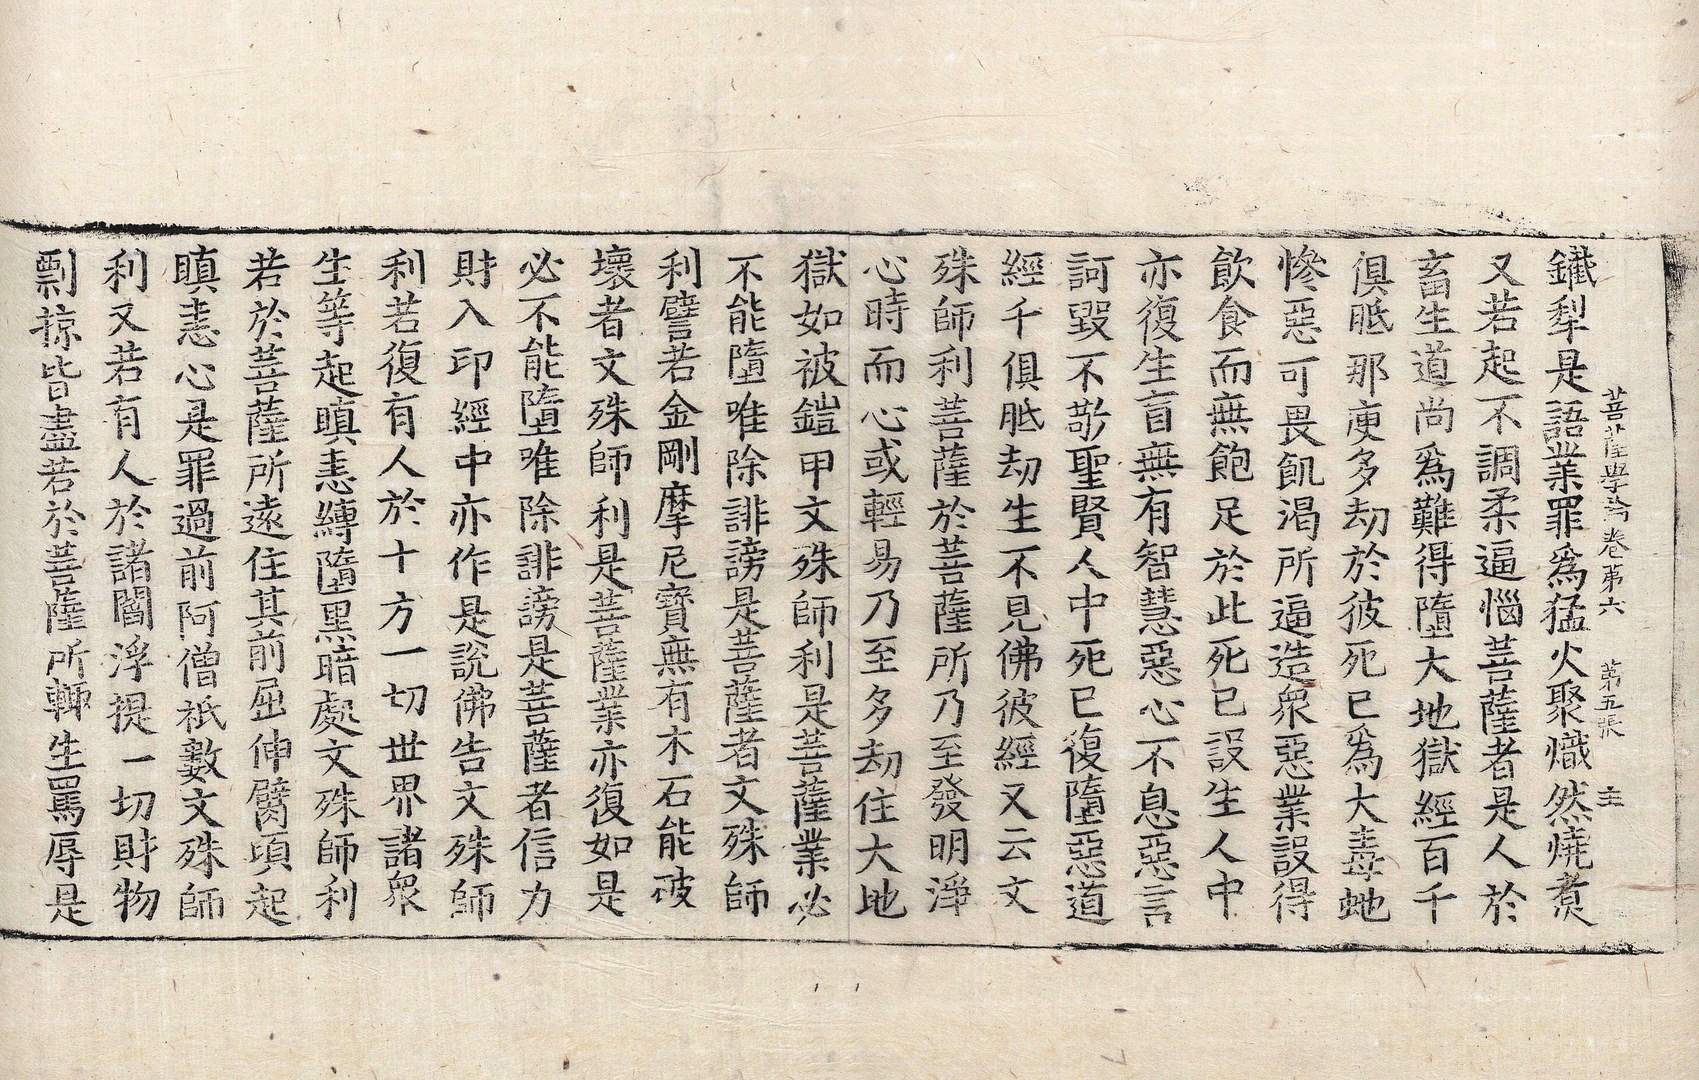 菩薩學論卷第六 第五張 主
鐵犁是語業罪爲猛火聚熾然燒煮
又若起不調柔逼惱菩薩者是人於
畜生道尚爲難得墮大地獄經百千
俱胝那庾多劫於彼死已爲大毒虵
慘惡可畏飢渴所逼造衆惡業設得
飲食而無飽足於此死已設生人中
亦復生盲無有智慧惡心不息惡言
訶毀不敬聖賢人中死已復墮惡道
經千俱胝劫生不見佛彼經又云文
殊師利菩薩於菩薩所乃至發明淨
心時而心或輕易乃至多劫住大地
獄如被鎧甲文殊師利是菩薩業必
不能墮唯除誹謗是菩薩者文殊師
利譬若金剛摩尼寶無有木石能破
壞者文殊師利是菩薩業亦復如是
必不能墮唯除誹謗是菩薩者信力
財入印經中亦作是說佛告文殊師
利若復有人於十方一切世界諸衆
生等起瞋恚縛墮黑暗處文殊師利
若於菩薩所遠住其前屈伸臂項起
瞋恚心是罪過前阿僧祇數文殊師
利又若有人於諸閻浮提一切財物
剽掠皆盡若於菩薩所輙生罵辱是